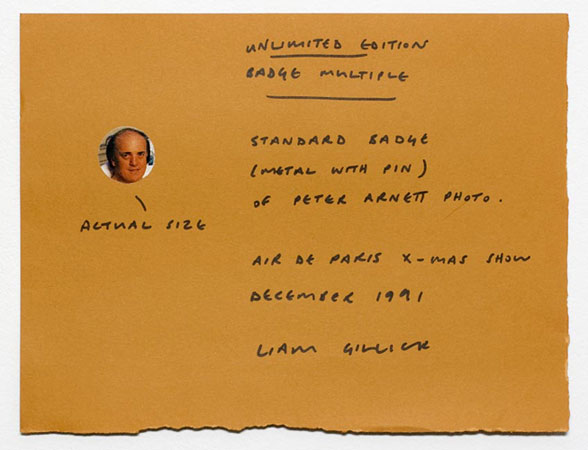 UNLIMITED EDITION
BADGE MULTIPLE
STANDARD BADGE
(METAL WITH PIN)
OF PETER ARNETT PHOTO.
ACTUAL SIZE
AIR DE PARIS X-MAS SHOW
DECEMBER 1991
LIAM GILLICK